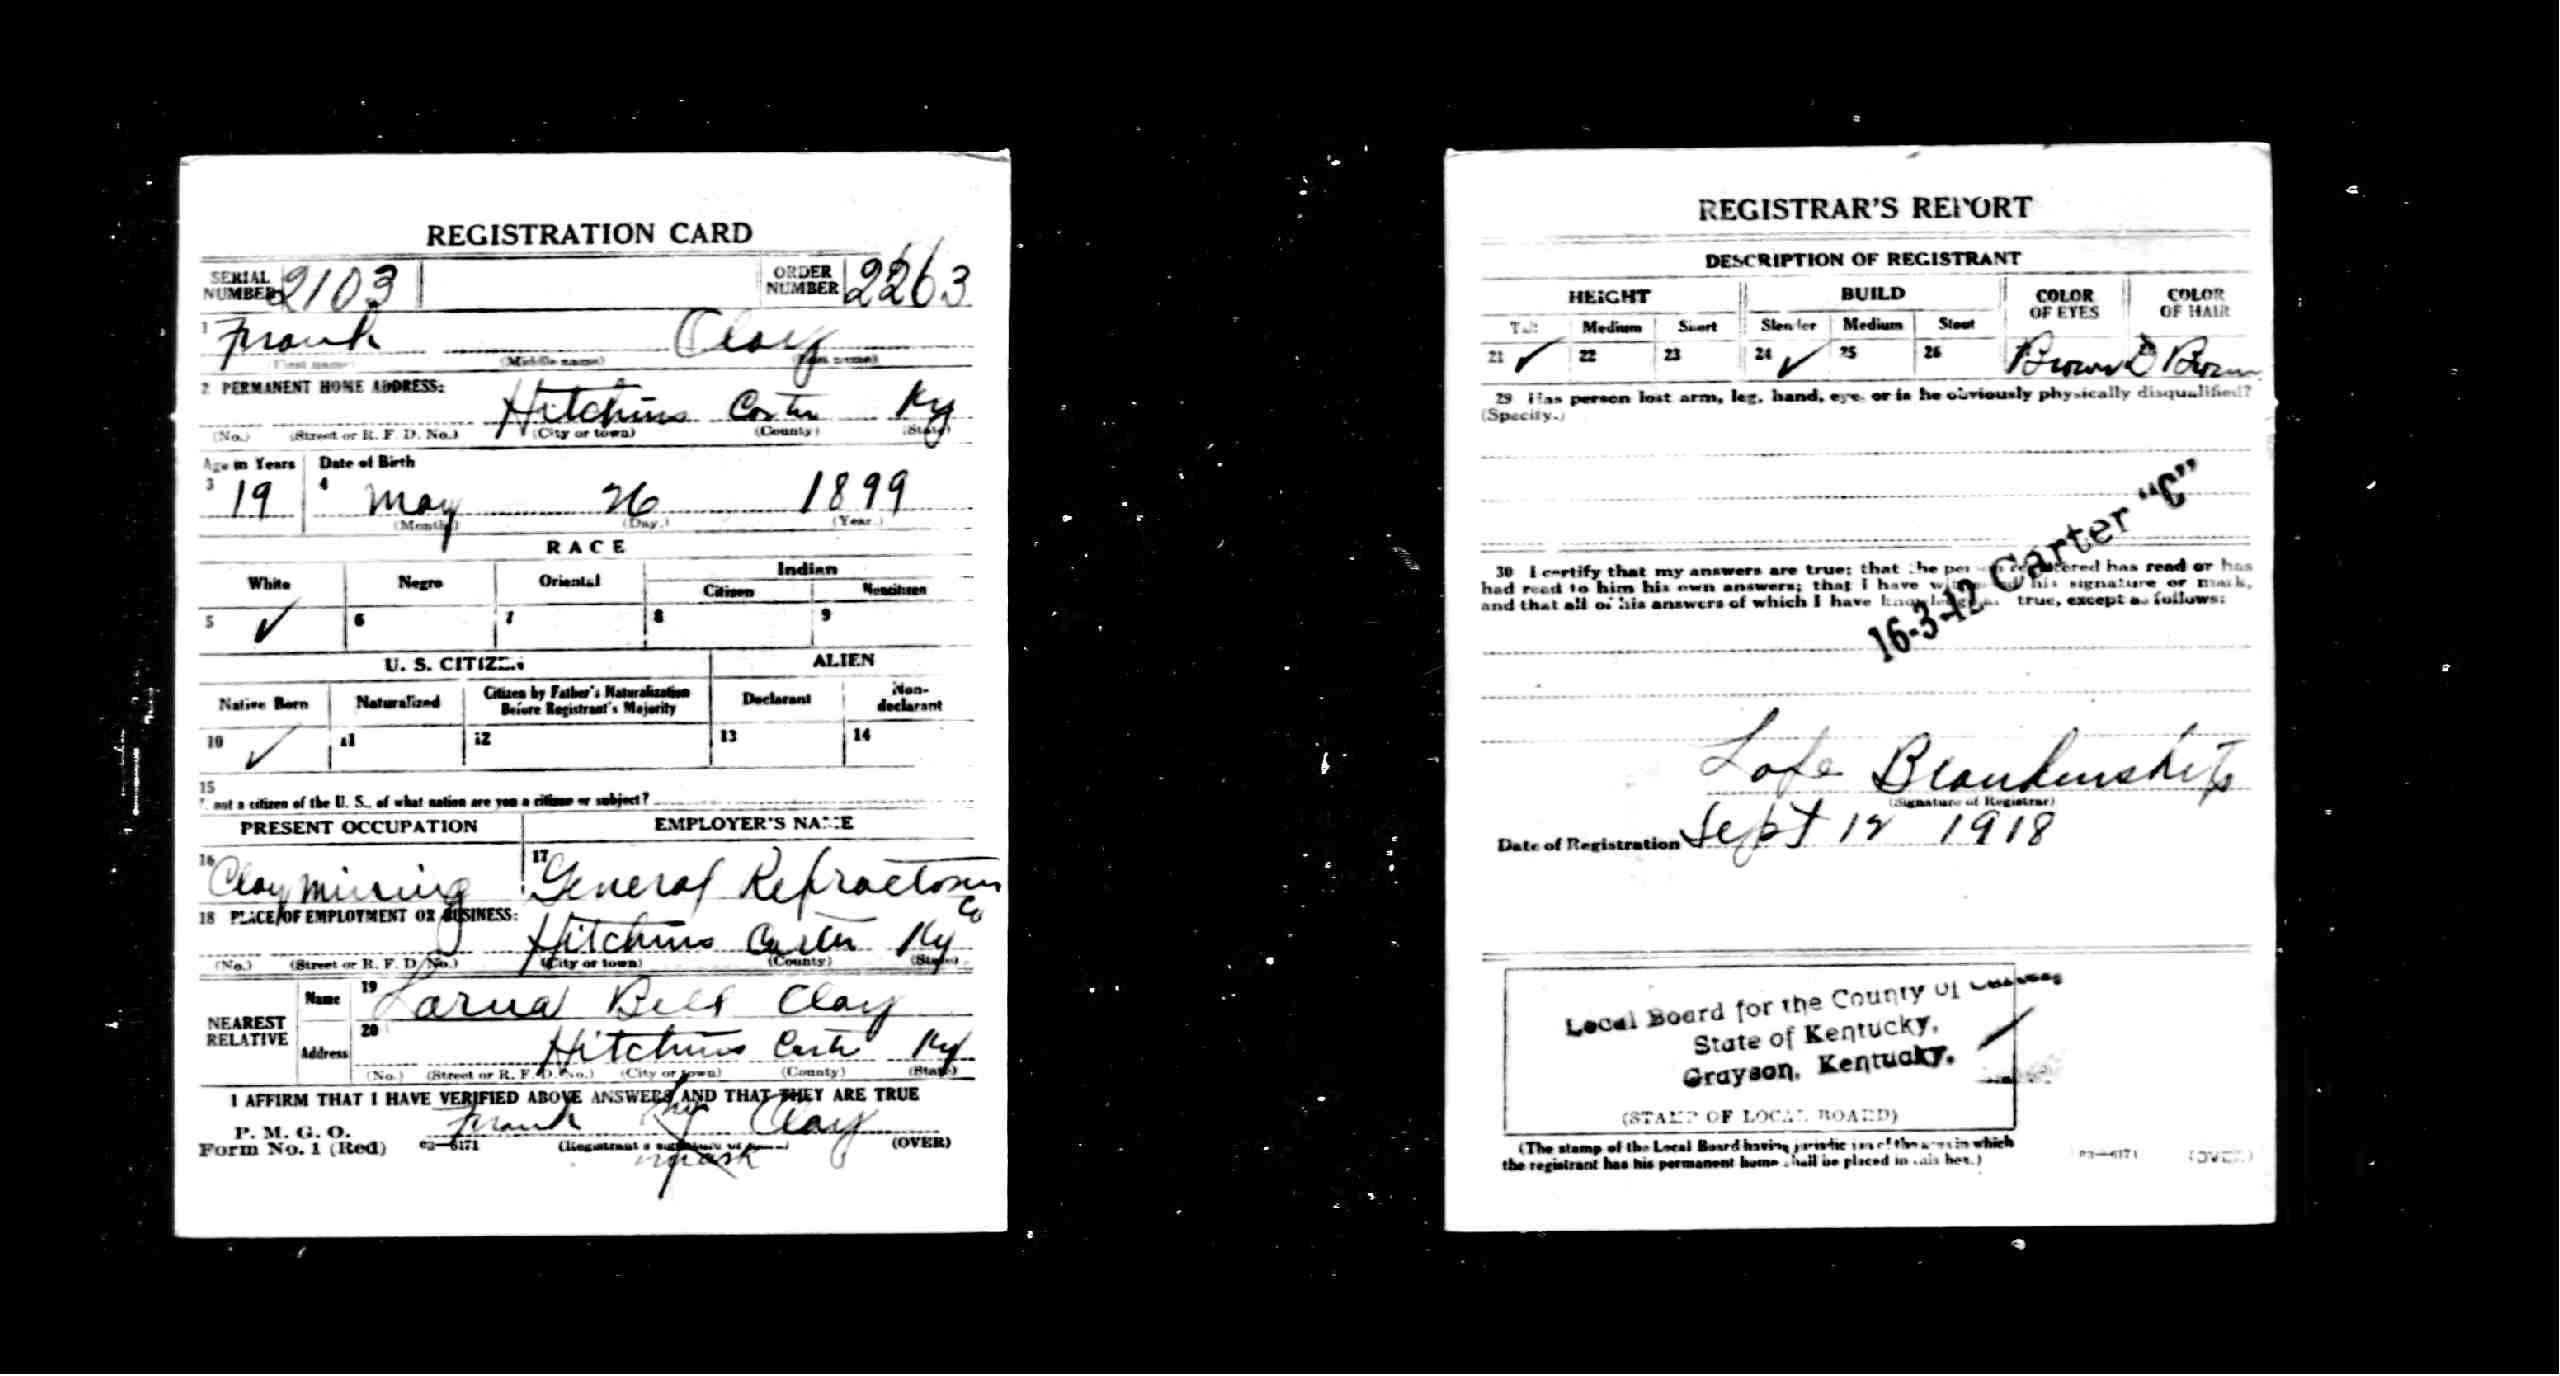 REGISTRATION CARD
SERIAL NUMBER 2103 ORDER NUMBER 2263
1 Frank Clay
(First name) (Middle name) (Last name)
2 PERMANENT HOME ADDRESS:
Hitchins Carter Ky
(No.) (Street or R. F. D. No.) (City or town) (County) (State)
Age in Years Date of Birth
3 19 4 May 26 1899
(Month.) (Day.) (Year.)
RACE
White Negro Oriental Indian
Citizen Noncitizen
5 ✓ 6 7 8 9
U. S. CITIZEN ALIEN
Native Born Naturalized Citizen by Father's Naturalization Before Registrant's Majority Declarant Non-declarant
10 ✓ 11 12 13 14
15
If not a citizen of the U. S., of what nation are you a citizen or subject?
PRESENT OCCUPATION EMPLOYER'S NAME
16 Clay mining 17 General Refractories Co
18 PLACE OF EMPLOYMENT OR BUSINESS:
Hitchins Carter Ky
(No.) (Street or R. F. D. No.) (City or town) (County) (State)
NEAREST RELATIVE
Name 19 Bell Clay
Address 20 Hitchins Carter Ky
(No.) (Street or R. F. D. No.) (City or town) (County) (State)
I AFFIRM THAT I HAVE VERIFIED ABOVE ANSWERS AND THAT THEY ARE TRUE
P. M. G. O.
Form No. 1 (Red) 03—6171 Frank his Clay (OVER)
(Registrant's signature or mark)
mark
REGISTRAR'S REPORT
DESCRIPTION OF REGISTRANT
HEIGHT BUILD COLOR OF EYES COLOR OF HAIR
Tall Medium Short Slender Medium Stout
21 ✓ 22 23 24 ✓ 25 26 Brown Brown
29 Has person lost arm, leg, hand, eye, or is he obviously physically disqualified?
(Specify.)
30 I certify that my answers are true; that the person registered has read or has
had read to him his own answers; that I have witnessed his signature or mark,
and that all of his answers of which I have knowledge are true, except as follows:
16-3-12 Carter "C"
(Signature of Registrar)
Date of Registration Sept 12 1918
Local Board for the County of
State of Kentucky,
Grayson, Kentucky.
(STAMP OF LOCAL BOARD)
(The stamp of the Local Board having jurisdiction of the area in which
the registrant has his permanent home shall be placed in this box.)
03—6171 (OVER)